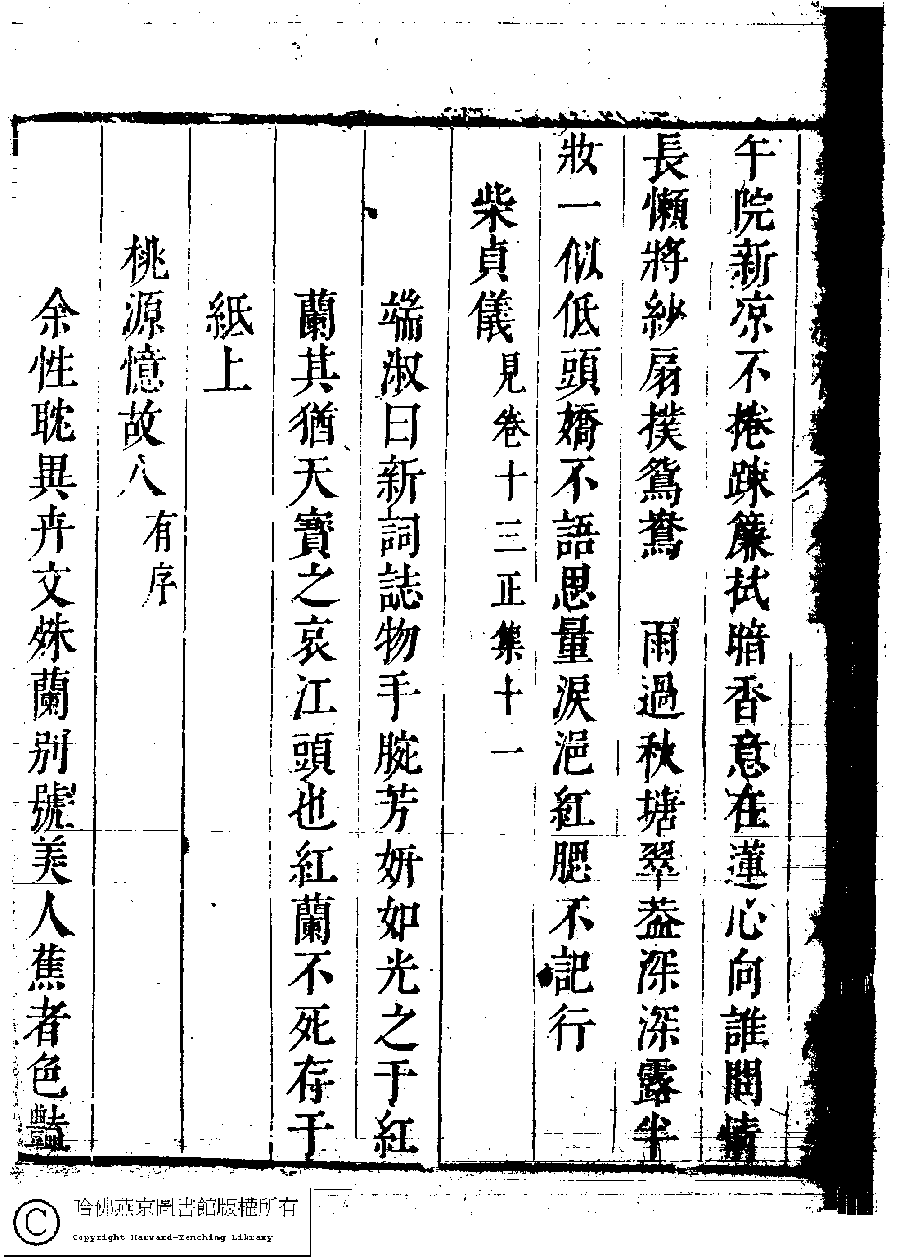 午院新凉不捲踈簾拭暗香意在蓮心向誰問情
長懶將紗扇撲鴛鴦　雨過秋塘翠葢深深露半
妝一似低頭嬌不語思量淚浥紅腮不記行
柴貞儀 見卷十三正集十一
端淑曰新詞誌物手腕芳妍如光之于紅
蘭其猶天寶之哀江頭也紅蘭不死存于
紙上
桃源憶故人 有序
余性耽異卉文殊蘭别號美人蕉者色豔
哈佛燕京圖書館版權所有
Copyright Harvard-Yenching Library